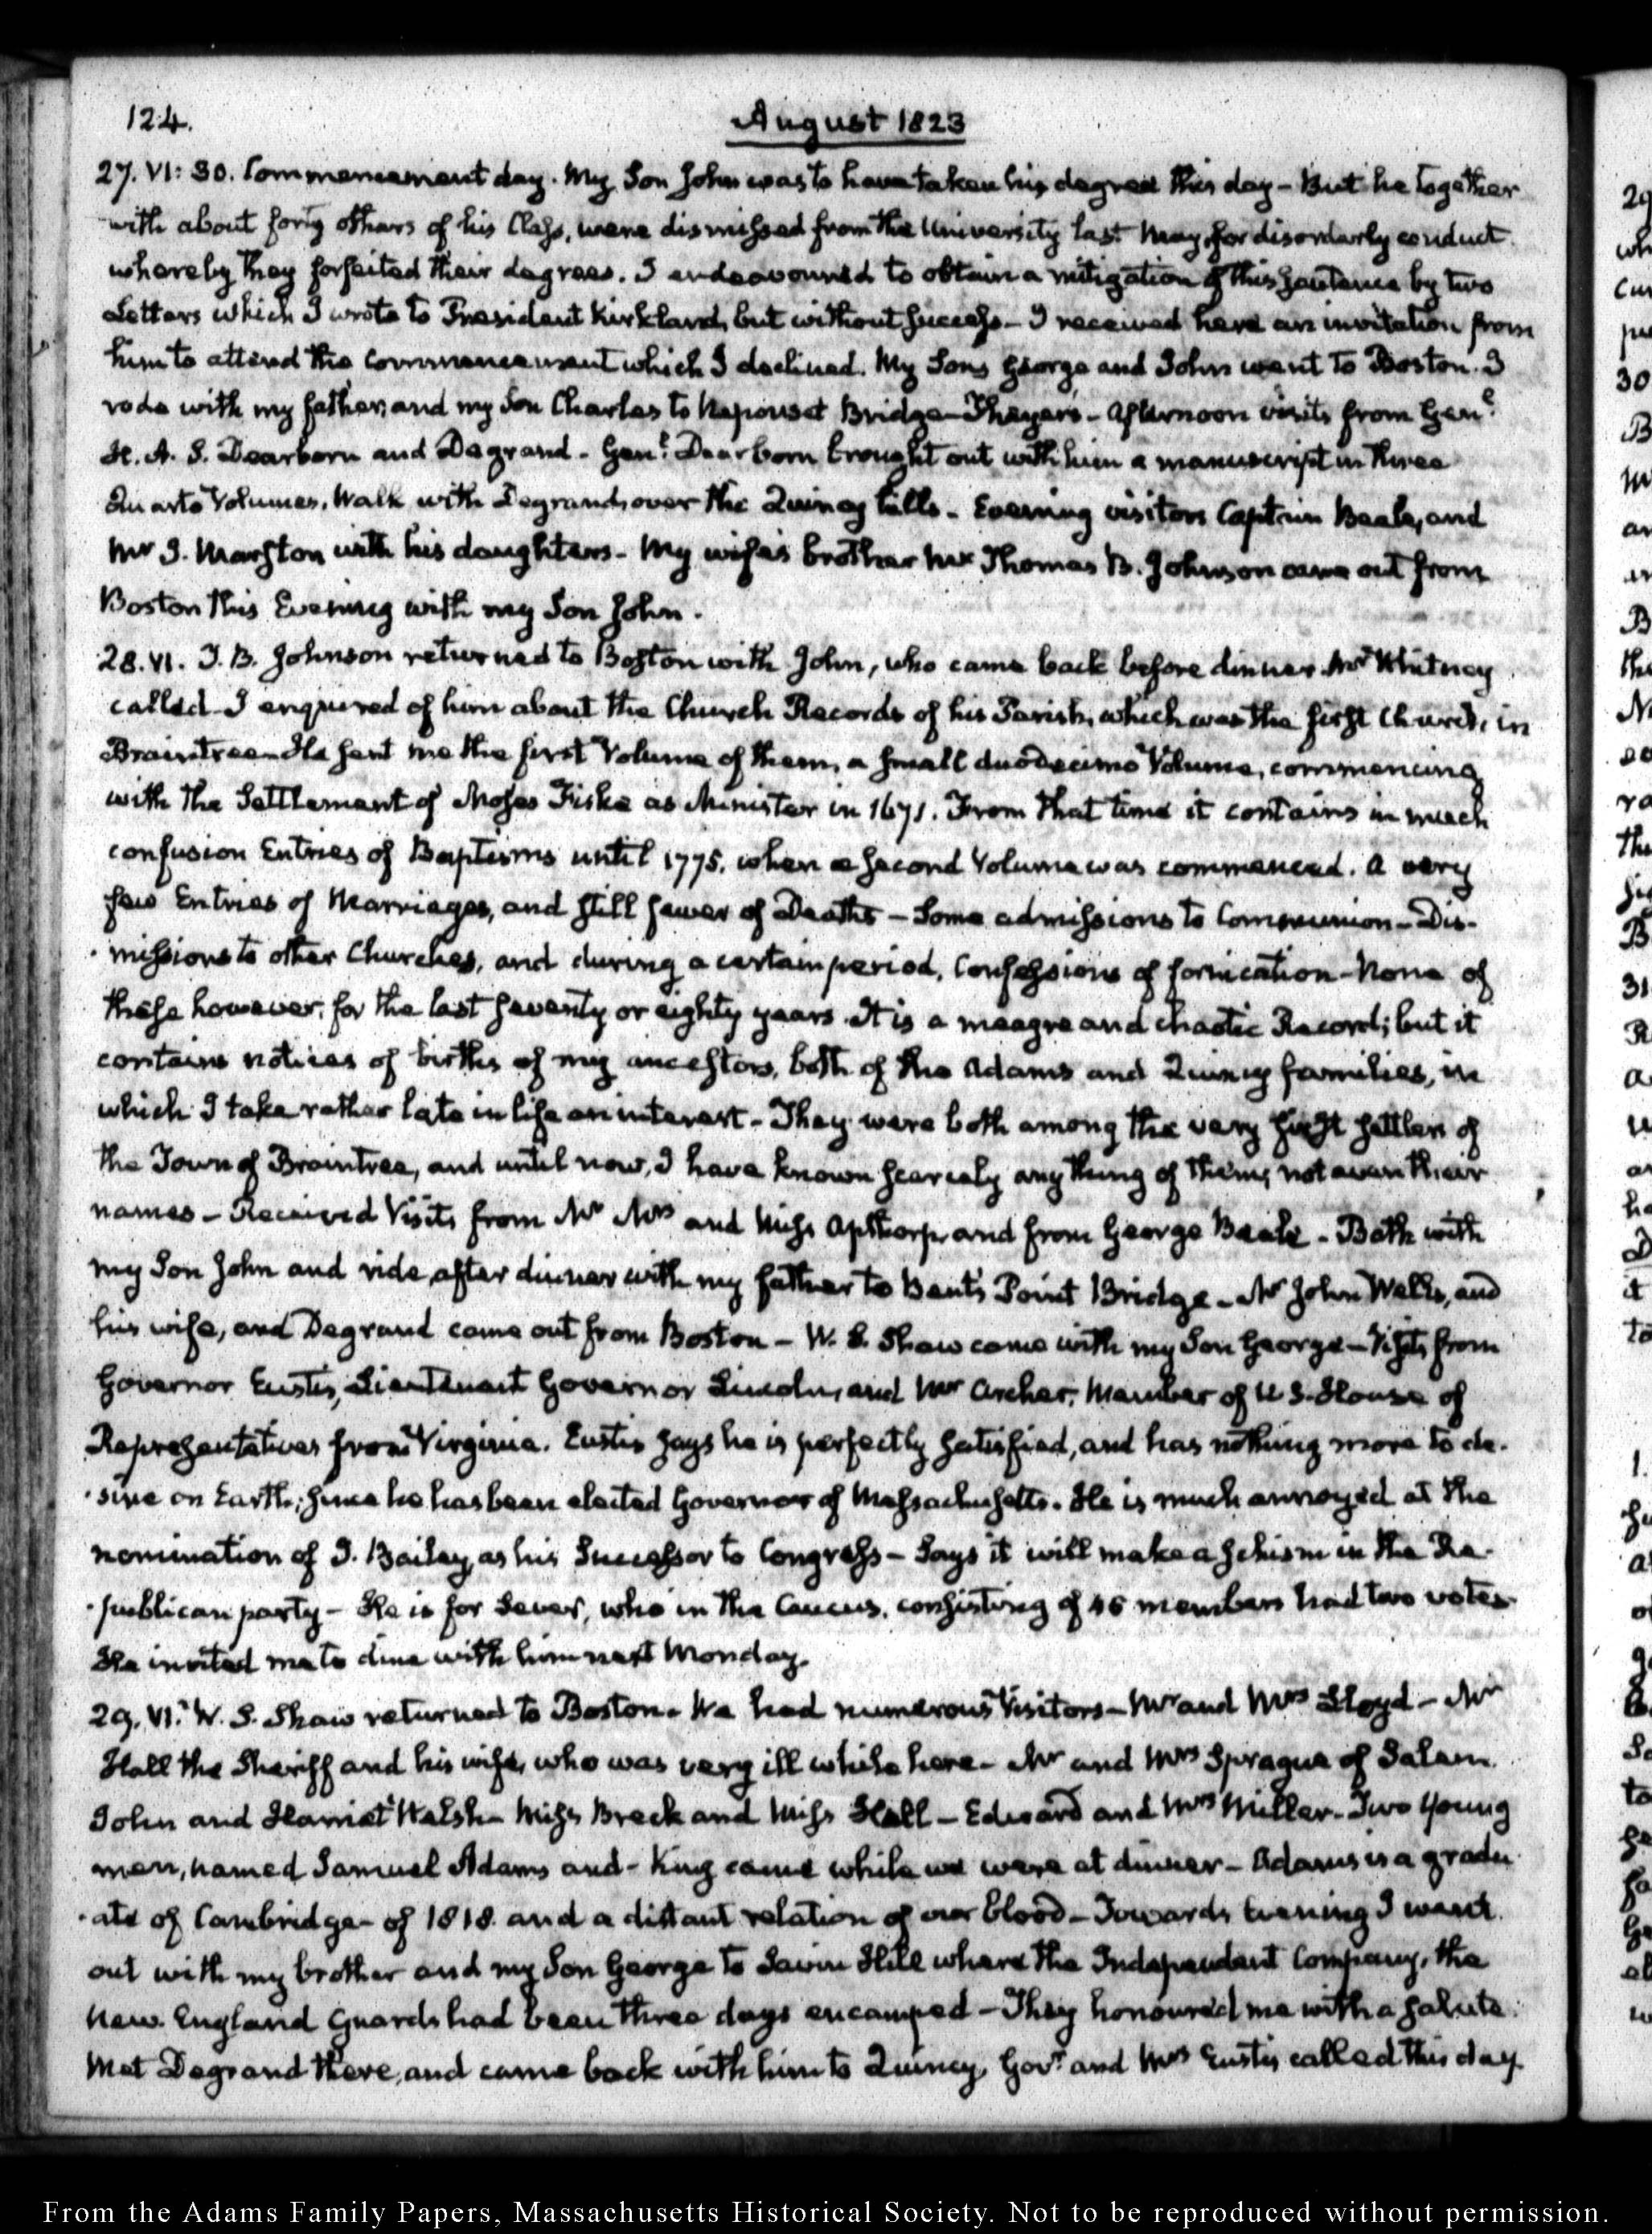 124.
August 1823
27. VI: 30. Commencement day. My Son John was to have taken his degree this day - But he together
with about forty others of his Class, were dismissed from the University last May, for disorderly conduct
whereby they forfeited their degrees. I endeavoured to obtain a mitigation of this sentence by two
Letters which I wrote to President Kirkland, but without success - I received here an invitation from
him to attend the Commencement which I declined. My Sons George and John went to Boston. I
rode with my father, and my Son Charles to Neponset Bridge - Thayer's - Afternoon visits from Genl.
H. A. S. Dearborn and Degrand - Genl. Dearborn brought out with him a manuscript in three
Quarto Volumes. Walk with Degrand, over the Quincy hills - Evening visitors Captain Beale, and
Mr J. Marston with his daughters - My wife's brother Mr Thomas B. Johnson came out from
Boston this Evening with my Son John.
28. VI. T. B. Johnson returned to Boston with John, who came back before dinner. Mr Whitney
called. I enquired of him about the Church Records of his Parish, which was the first Church, in
Braintree. He sent me the first Volume of them, a small duodecimo Volume, commencing
with the Settlement of Moses Fiske as Minister in 1671. From that time it contains in much
confusion Entries of Baptisms until 1775. when a second Volume was commenced. A very
few Entries of Marriages, and still fewer of Deaths - Some admissions to Communion - Dis-
-missions to other Churches, and during a certain period, Confessions of fornication - None of
these however, for the last seventy or eighty years. It is a meagre and chaotic Record; but it
contains notices of births of my ancestors, both of the Adams and Quincy families, in
which I take rather late in life an interest - They were both among the very first settlers of
the Town of Braintree, and until now, I have known scarcely any thing of them; not even their
names - Received Visits from Mr Mrs and Miss Apthorp, and from George Beale - Bath with
my Son John and ride after dinner with my father to Bent's Point Bridge - Mr John Welles, and
his wife, and Degrand came out from Boston - W. S. Shaw came with my Son George - Visits from
Governor Eustis, Lieutenant Governor Lincoln, and Mr Archer, Member of U S. House of
Representatives from Virginia. Eustis says he is perfectly satisfied, and has nothing more to de-
-sire on Earth, since he has been elected Governor of Massachusetts. He is much annoyed at the
nomination of J. Bailey, as his Successor to Congress - Says it will make a schism in the Re-
-publican party - He is for Sever, who in the Caucus, consisting of 46 members had two votes
He invited me to dine with him next Monday.
29. VI. W. S. Shaw returned to Boston. We had numerous Visitors - Mr and Mrs Lloyd - Mr
Hall the Sheriff and his wife, who was very ill while here - Mr and Mrs Sprague of Salem.
John and Harriet Welsh - Miss Breck and Miss Hall - Edward and Mrs Miller - Two young
men, named Samuel Adams and - King came while we were at dinner - Adams is a gradu-
-ate of Cambridge - of 1818. and a distant relation of our blood - Towards Evening I went
out with my brother and my Son George to Savin Hill where the Independent Company, the
New England Guards had been three days encamped - They honoured me with a salute.
Met Degrand there, and came back with him to Quincy. Govr. and Mrs Eustis called this day
From the Adams Family Papers, Massachusetts Historical Society. Not to be reproduced without permission.